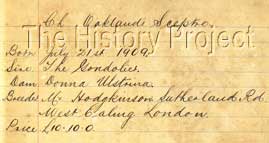 Ch. Oaklands Sceptre.
The History Project
Born July 21st 1909.
Sire The Gondolier.
Dam Donna
Breeder Mr Hodgkinson Sutherland Rd
West Ealing London.
Price £10-10-0.